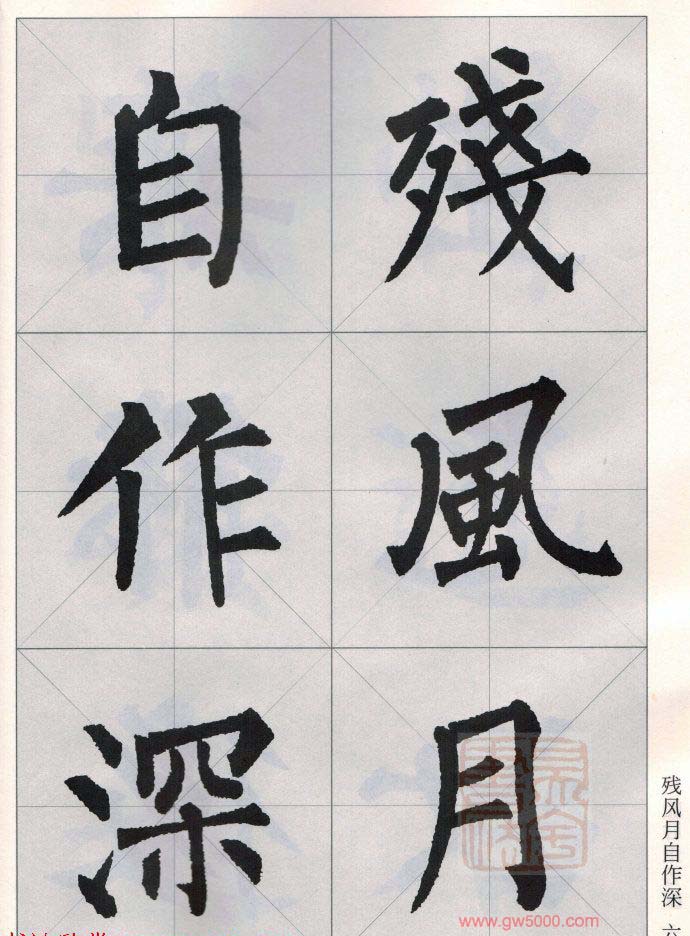 殘風月
自作深
残风月自作深 六
www.gw5000.com